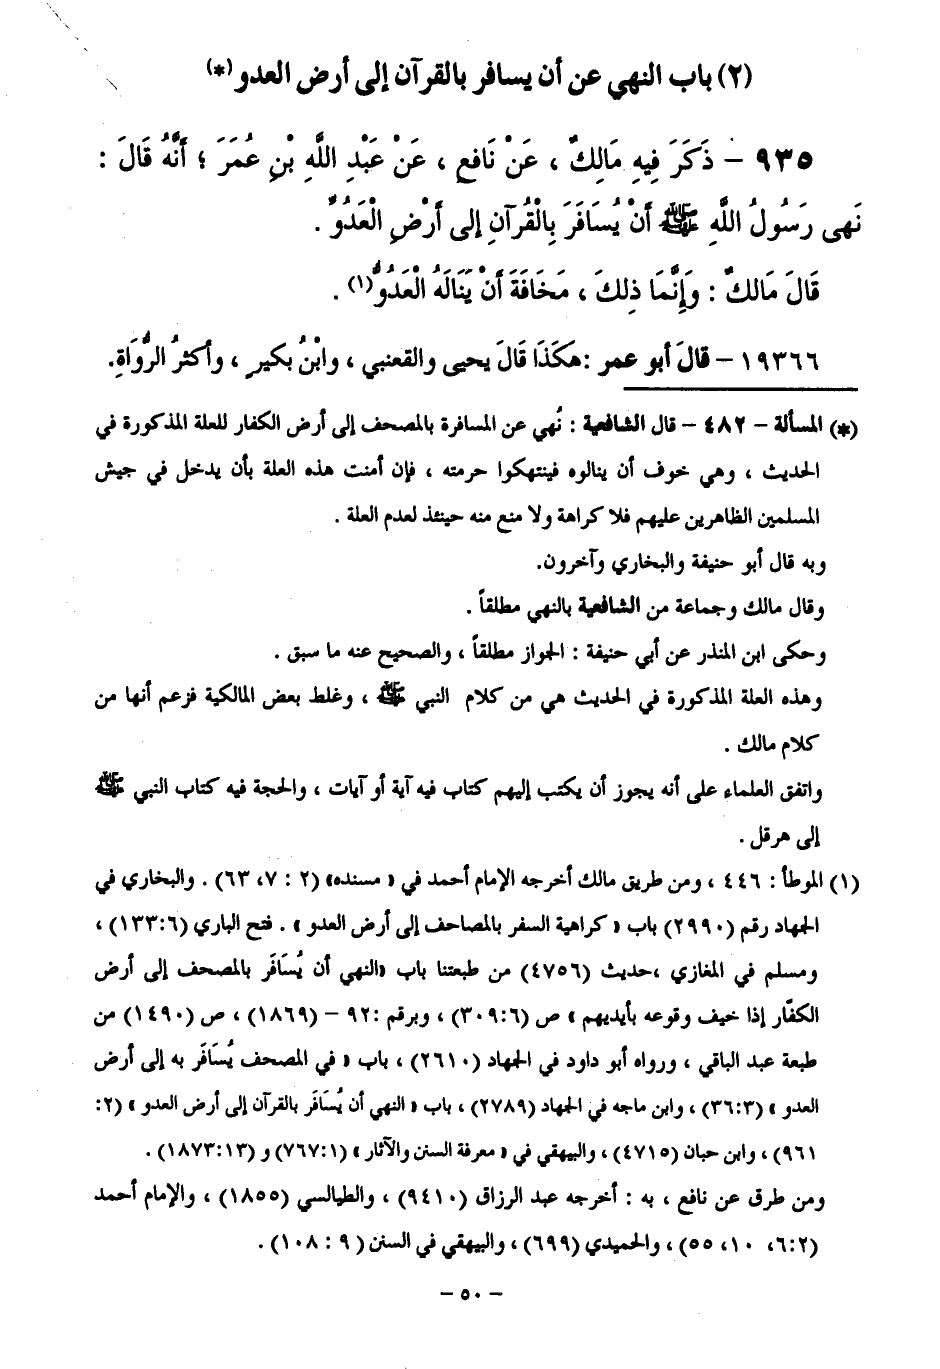 (٢) باب النهي عن أن يسافر بالقرآن إلى أرض العدو (*)
٩٣٥ – ذَكَرَ فِيهِ مَالِكٌ ، عَنْ نَافعٍ ، عَنْ عَبْدِ اللَّهِ بْنِ عُمَرَ ؛ أَنَّهُ قَالَ :
نَهى رَسُولُ اللَّهِ ﷺ أَنْ يُسَافَرَ بِالْقُرآنِ إلى أَرْضِ الْعَدُوِّ .
قَالَ مَالكٌ : وَإِنَّمَا ذلِكَ ، مَخَافَةَ أَنْ يَنَالَهُ الْعَدُوُّ(١) .
١٩٣٦٦ – قالَ أبو عمر :هكَذَا قَالَ يحيى والقعنبي ، وابْنُ بكيرٍ ، وأكثرُ الرُّوَاةِ.
(*) المسألة – ٤٨٢ – قال الشافعية : نُهي عن المسافرة بالمصحف إلى أرض الكفار للعلة المذكورة في
الحديث ، وهي خوف أن ينالوه فينتهكوا حرمته ، فإن أمنت هذه العلة بأن يدخل في جيش
المسلمين الظاهرين عليهم فلا كراهة ولا منع منه حينئذ لعدم العلة .
وبه قال أبو حنيفة والبخاري وآخرون.
وقال مالك وجماعة من الشافعية بالنهي مطلقاً .
وحكى ابن المنذر عن أبي حنيفة : الجواز مطلقاً ، والصحيح عنه ما سبق .
وهذه العلة المذكورة في الحديث هي من كلام النبي ﷺ ، وغلط بعض المالكية فزعم أنها من
كلام مالك .
واتفق العلماء على أنه يجوز أن يكتب إليهم كتاب فيه آية أو آيات ، والحجة فيه كتاب النبي ﷺ
إلى هرقل .
(١) الموطأ : ٤٤٦ ، ومن طريق مالك أخرجه الإمام أحمد في « مسنده» (٢ : ٧، ٦٣) . والبخاري في
الجهاد رقم (٢٩٩٠) باب « كراهية السفر بالمصاحف إلى أرض العدو » . فتح الباري (١٣٣:٦) ،
ومسلم في المغازي ،حديث (٤٧٥٦) من طبعتنا باب «النهي أن يُسَافَر بالمصحف إلى أرض
الكفّار إذا خيف وقوعه بأيديهم » ص (٣٠٩:٦) ، وبرقم :٩٢ – (١٨٦٩) ، ص (١٤٩٠) من
طبعة عبد الباقي ، ورواه أبو داود في الجهاد (٢٦١٠) ، باب « في المصحف يُسَافَر به إلى أرض
العدو » (٣٦:٣) ، وابن ماجه في الجهاد (٢٧٨٩) ، باب « النهي أن يُسَافَر بالقرآن إلى أرض العدو » (٢:
٩٦١) ، وابن حبان (٤٧١٥) ، والبيهقي في « معرفة السنن والآثار » (٧٦٧:١) و (١٨٧٣:١٣) .
ومن طرق عن نافع ، به : أخرجه عبد الرزاق (٩٤١٠) ، والطيالسي (١٨٥٥) ، والإمام أحمد
(٦:٢، ١٠، ٥٥) ، والحميدي (٦٩٩) ، والبيهقي في السنن ( ٩ : ١٠٨) .
– ٥٠ –